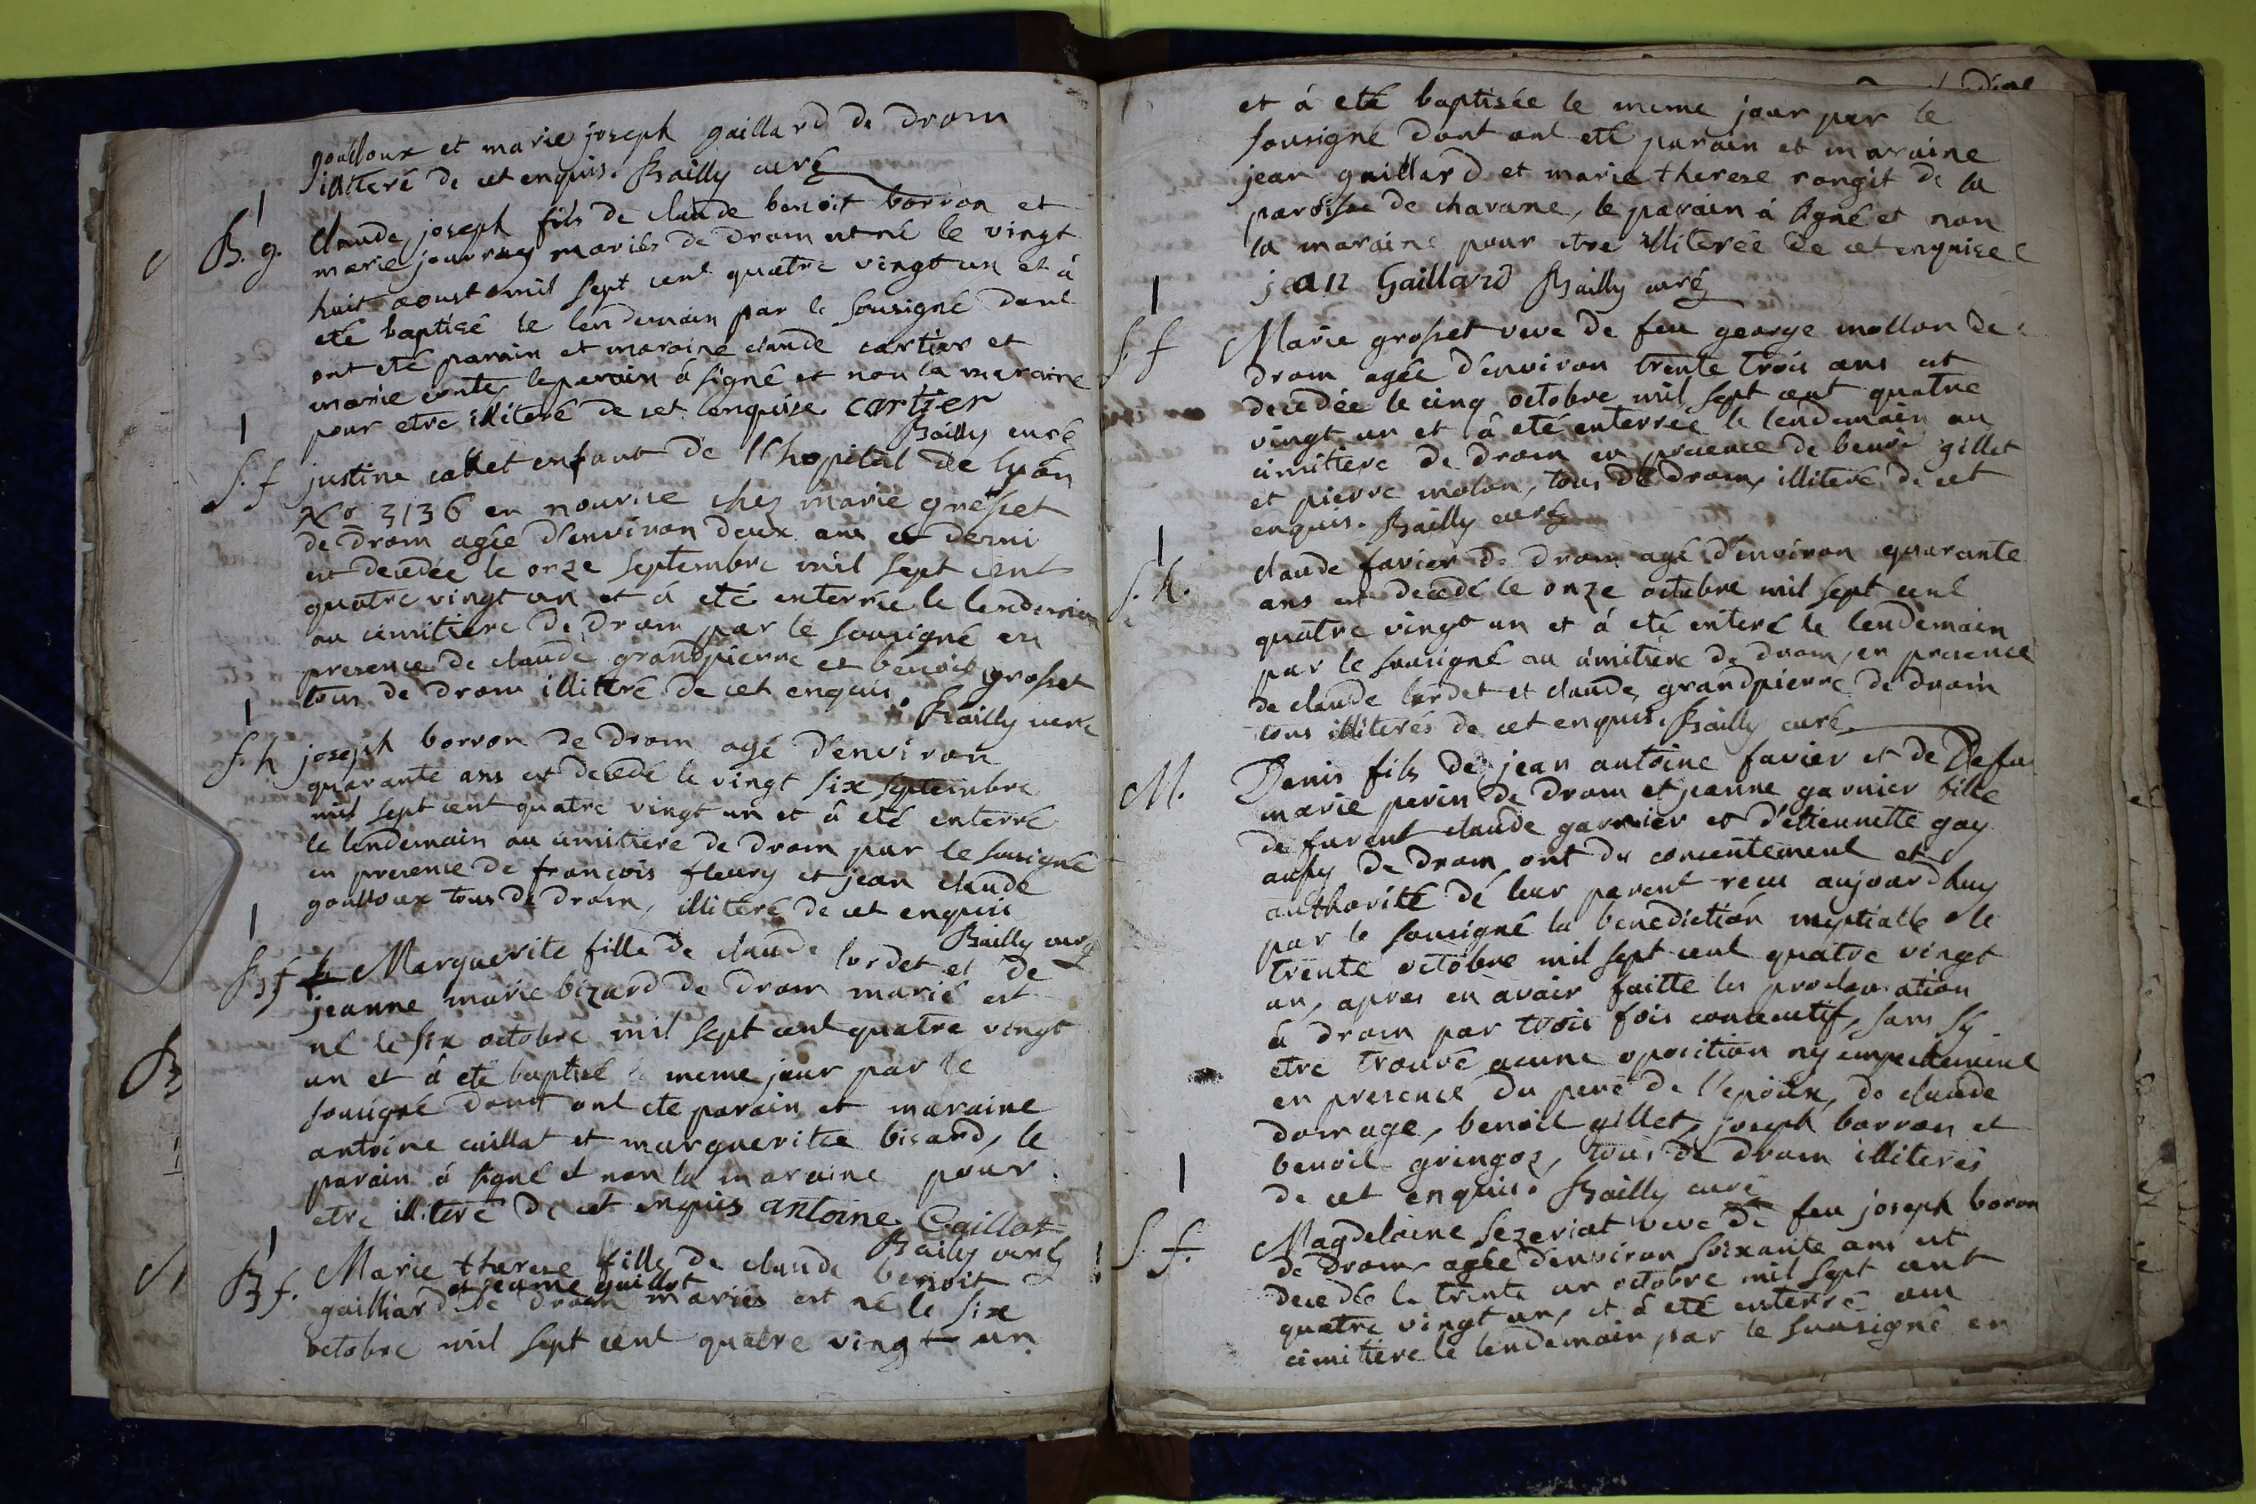 goulloux et marie joseph gaillard de drom
illiteré de cet enquis. Bailly curé
B. g. Claude joseph fils de claude benoit borron et
marie mariés de drom est né le vingt
huit aoust mil sept cent quatre vingt un et à
eté baptisé le lendemain par le sousigné dont
ont eté parain et maraine claude cartier et
marie le parain á signé et non la maraine
pour etre illiteré de cet enquise cartier
Bailly curé
S. f justine callet enfant de l'hopital de lyon
No 3136 en nourice chez marie grosset
de drom agée d'environ deux ans et demi
est decedée le onze septembre mil sept cent
quatre vingt un et á eté enterrée le lendemain
au cimitiere de drom par le sousigné en
presence de claude grandpierre et benoit grosset
tous de drom illiteré de cet enquis.
Bailly curé
S. h joseph borron de drom agé d'environ
quarante ans est decedé le vingt six septembre
mil sept cent quatre vingt un et â eté enterré
le lendemain au cimitiere de drom par le sousigné
en presence de françois fleury et jean claude
goulloux tous de drom, illiteré de cet enquis
Bailly curé
B f Marguerite fille de claude lordet et de
jeanne marie bizard de drom marié est
né le six octobre mil sept cent quatre vingt
un et á eté baptisé le meme jour par le
sousigné dont ont ete parain et maraine
antoine caillat et marguerite bisard, le
parain á signé et non la maraine pour
etre illiteré de cet enquis antoine Caillat
Bailly curé
B f. Marie therese fille de claude benoit
et jeanne
gailliard de drom mariés est né le six
octobre mil sept cent quatre vingt un
et á eté baptisée le meme jour par le
sousigné dont ont eté parain et maraine
jean gaillard et marie therese rongit de la
paroisse de chavane, le parain á signé et non
la maraine pour etre illiterée de cet enquise
jean Gaillard Bailly curé
S. f Marie grosset veve de feu george mollon de
drom agée d'environ trente trois ans est
decedée le cinq octobre mil sept cent quatre
vingt un et á eté enterrée le lendemain au
cimitiere de drom en presence de benoi gillet
et pierre molon, tous de drom, illiteré de cet
enquis. Bailly curé
S. h. claude favier de drom agé d'environ quarante
ans est decedé le onze octobre mil sept cent
quatre vingt un et á eté enteré le lendemain
par le sousigné au cimitiere de drom, en presence
de claude lordet et claude grandpierre de drom
tous illiterés de cet enquis. Bailly curé
M. Denis fils de jean antoine favier et de
marie perin de drom et jeanne garnier fille
de furent claude garnier et d'etiennette gay
aussy de drom ont du concentement et
authorité de leur parent recu aujourdhuy
par le sousigné la benediction nuptialle le
trente octobre mil sept cent quatre vingt
un, apres en avoir faitte les proclamation
á drom par trois fois consecutif, sans sy
etre trouvé acune oposition ny empechement
en presence du pere de l'epoux, de claude
domage, benoit gillet, joseph borron et
benoit gringoz, tous de drom illiterés
de cet enquis. Bailly curé
S. f. Magdelaine Sezeriat veve de feu joseph boron
de drom agée d'environ soixante ans est
decedée le trente un octobre mil sept cent
quatre vingt un, et á eté enterré au
cimitiere le lendemain par le sousigné en